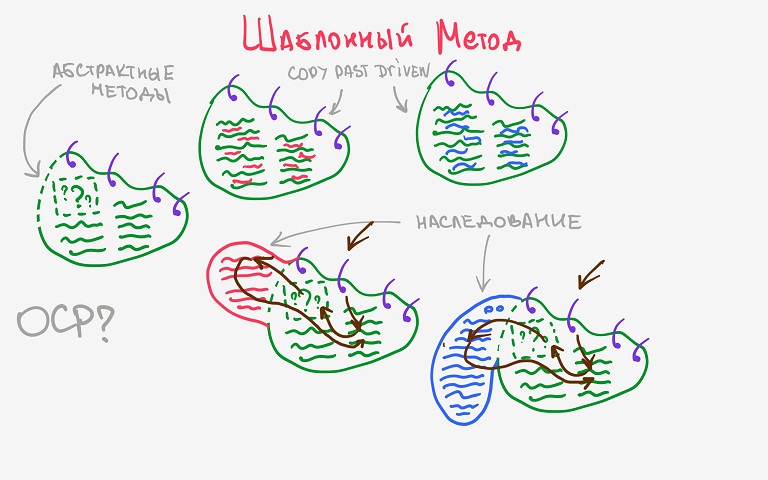 Шаблонный Метод
АБСТРАКТНЫЕ
МЕТОДЫ
COPY PAST DRIVEN
???
НАСЛЕДОВАНИЕ
???
???
OCP?